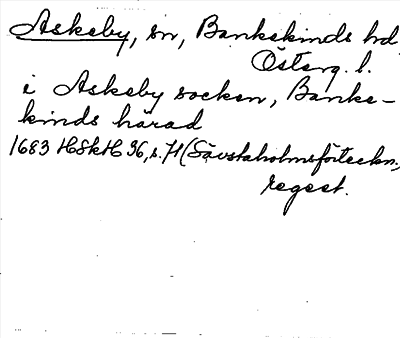 Askeby, sn, Bankekinds hd
Österg. l.
i Askeby socken, Banke-
kinds härad
1683 HSkH 36, s. 71 (Sävstaholmsförteckn.,
regest.